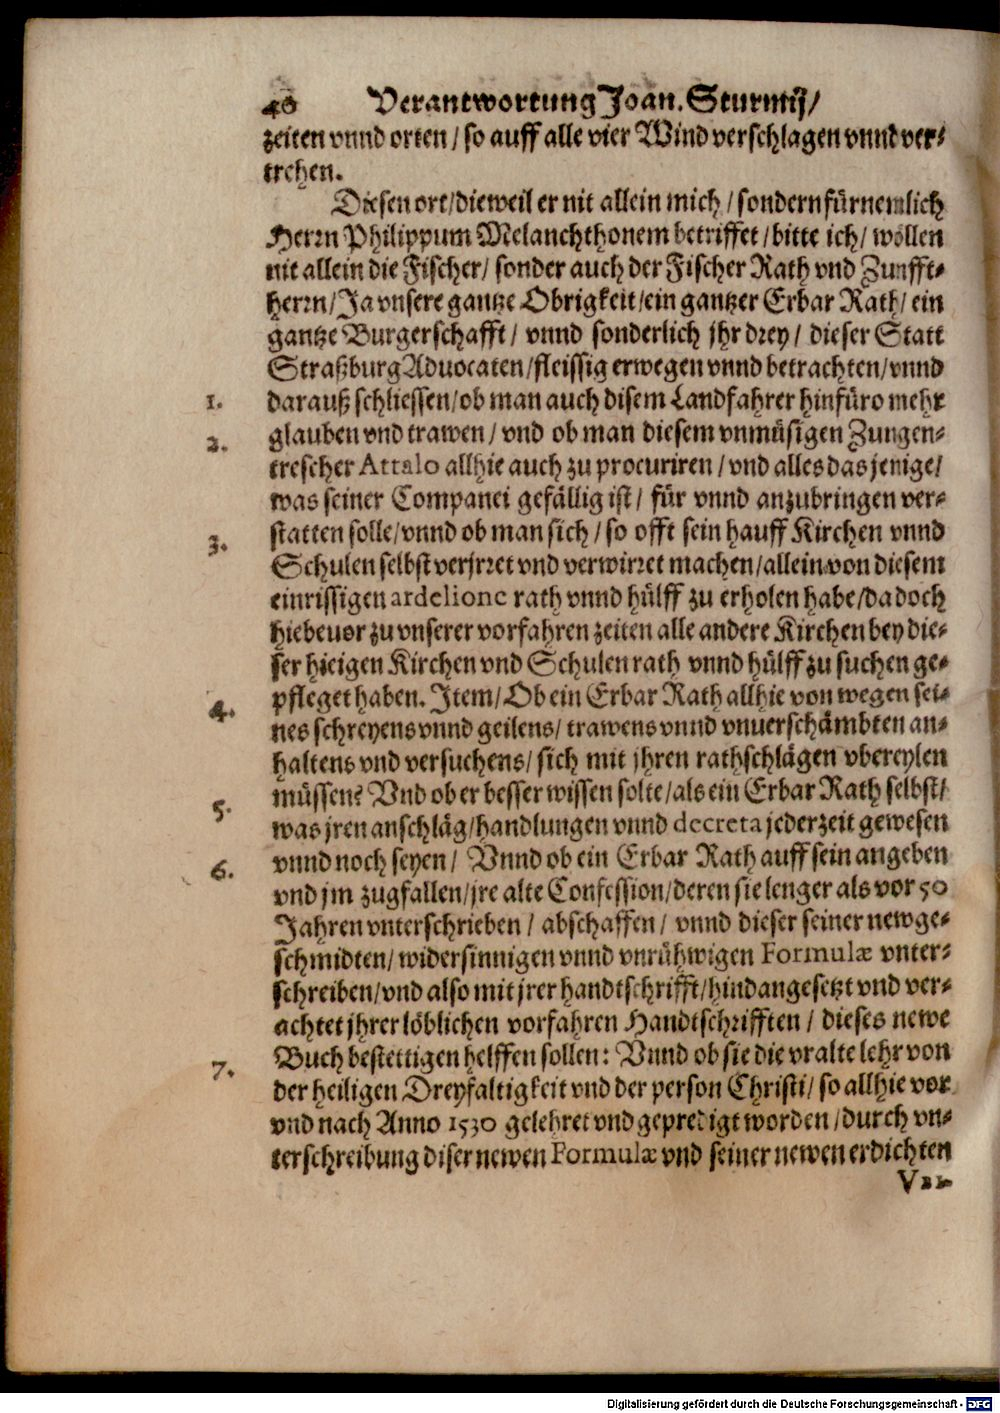 40 Verantwortung Joan. Sturmij/
zeiten vnnd orten/ so auff alle vier Wind verschlagen vnnd ver-
trehen.
Diesen ort/ dieweil er nit allein mich/ sondern fürnemlich
Herrn Philippum Melanchthonem betriffet/ bitte ich/ wöllen
nit allein die Fischer/ sonder auch der Fischer Rath vnd Zunfft-
herrn/ Ja vnsere gantze Obrigkeit/ ein gantzer Erbar Rath/ ein
gantze Burgerschafft/ vnnd sonderlich jhr drey/ dieser Statt
Straßburg Aduocaten/ fleissig erwegen vnnd betrachten/ vnnd
1. darauß schliessen/ ob man auch disem Landfahrer hinfüro mehr
2. glauben vnd trawen/ vnd ob man diesem vnmüsigen Zungen-
trescher Attalo allhie auch zu procuriren/ vnd alles das jenige/
was seiner Companei gefällig ist/ für vnnd anzubringen ver-
3. statten solle/ vnnd ob man sich/ so offt sein hauff Kirchen vnnd
Schulen selbst verjrret vnd verwirret machen/ allein von diesem
einrissigen ardelione rath vnnd hülff zu erholen habe/ da doch
hiebeuor zu vnserer vorfahren zeiten alle andere Kirchen bey die-
ser hieigen Kirchen vnd Schulen rath vnnd hülff zu suchen ge-
4. pfleget haben. Item/ Ob ein Erbar Rath allhie von wegen sei-
nes schreyens vnnd geilens/ trawens vnnd vnuerschämbten an-
haltens vnd versuchens/ sich mit jhren rathschlägen vbereylen
5. müssen? Vnd ob er besser wissen solte/ als ein Erbar Rath selbst/
was jren anschläg/ handlungen vnnd decreta jederzeit gewesen
6. vnnd noch seyen/ Vnnd ob ein Erbar Rath auff sein angeben
vnd jm zugfallen/ jre alte Confession/ deren sie lenger als vor 50
Jahren vnterschrieben/ abschaffen/ vnnd dieser seiner newge-
schmidten/ widersinnigen vnnd vnrühwigen Formulæ vnter-
schreiben/ vnd also mit jrer handtschrifft/ hindangesetzt vnd ver-
achtet jhrer löblichen vorfahren Handtschrifften/ dieses newe
7. Buch bestettigen helffen sollen: Vnnd ob sie die vralte lehr von
der heiligen Dreyfaltigkeit vnd der person Christi/ so allhie vor
vnd nach Anno 1530 gelehret vnd gepredigt worden/ durch vn-
terschreibung diser newen Formulæ vnd seiner newen erdichten
Digitalisierung gefördert durch die Deutsche Forschungsgemeinschaft - DFG